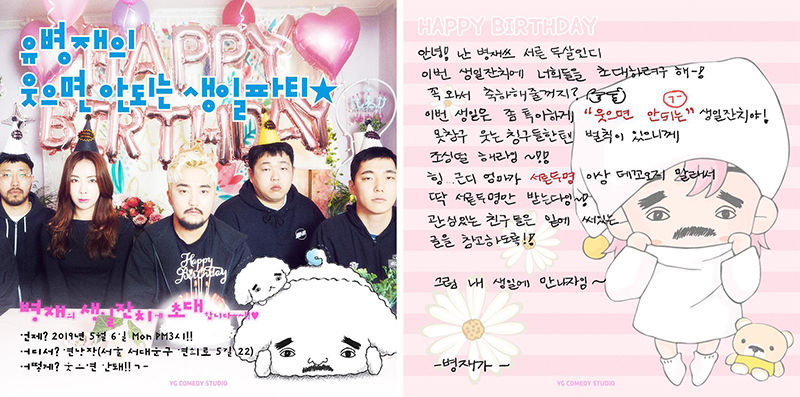 유병재의
웃으면 안되는 생일파티★
HAPPY
BIRTHDAY
Happy
Birthday
병재의 생일잔치에 초대합니다~~!!♥
언제? 2019년 5월 6일 Mon PM3시!!
어디서? 연남장(서울 서대문구 연희로 5길 22)
어떻게? 웃으면 안돼!! ㄱ-
YG COMEDY STUDIO
HAPPY BIRTHDAY
안녕! 난 병재쓰 서른 두살인디
이번 생일잔치에 너희들을 초대하려구 해~!
꼭 와서 축하해줄꺼지?
이번 생일은 좀 특이하게 "웃으면 안되는" 생일잔치야!
ㄱ-
못참구 웃는 칭구들한텐 벌칙이 있으니께
조심덜 하라염 ~!!
힝.. 근디 엄마가 서른두명 이상 데꼬오지 말래서
딱 서른두명만 받는다잉~
관심있는 친구들은 밑에 써있는
글을 참고하도록!!
그럼 내 생일에 만나자잉 ~
-병재가-
YG COMEDY STUDIO